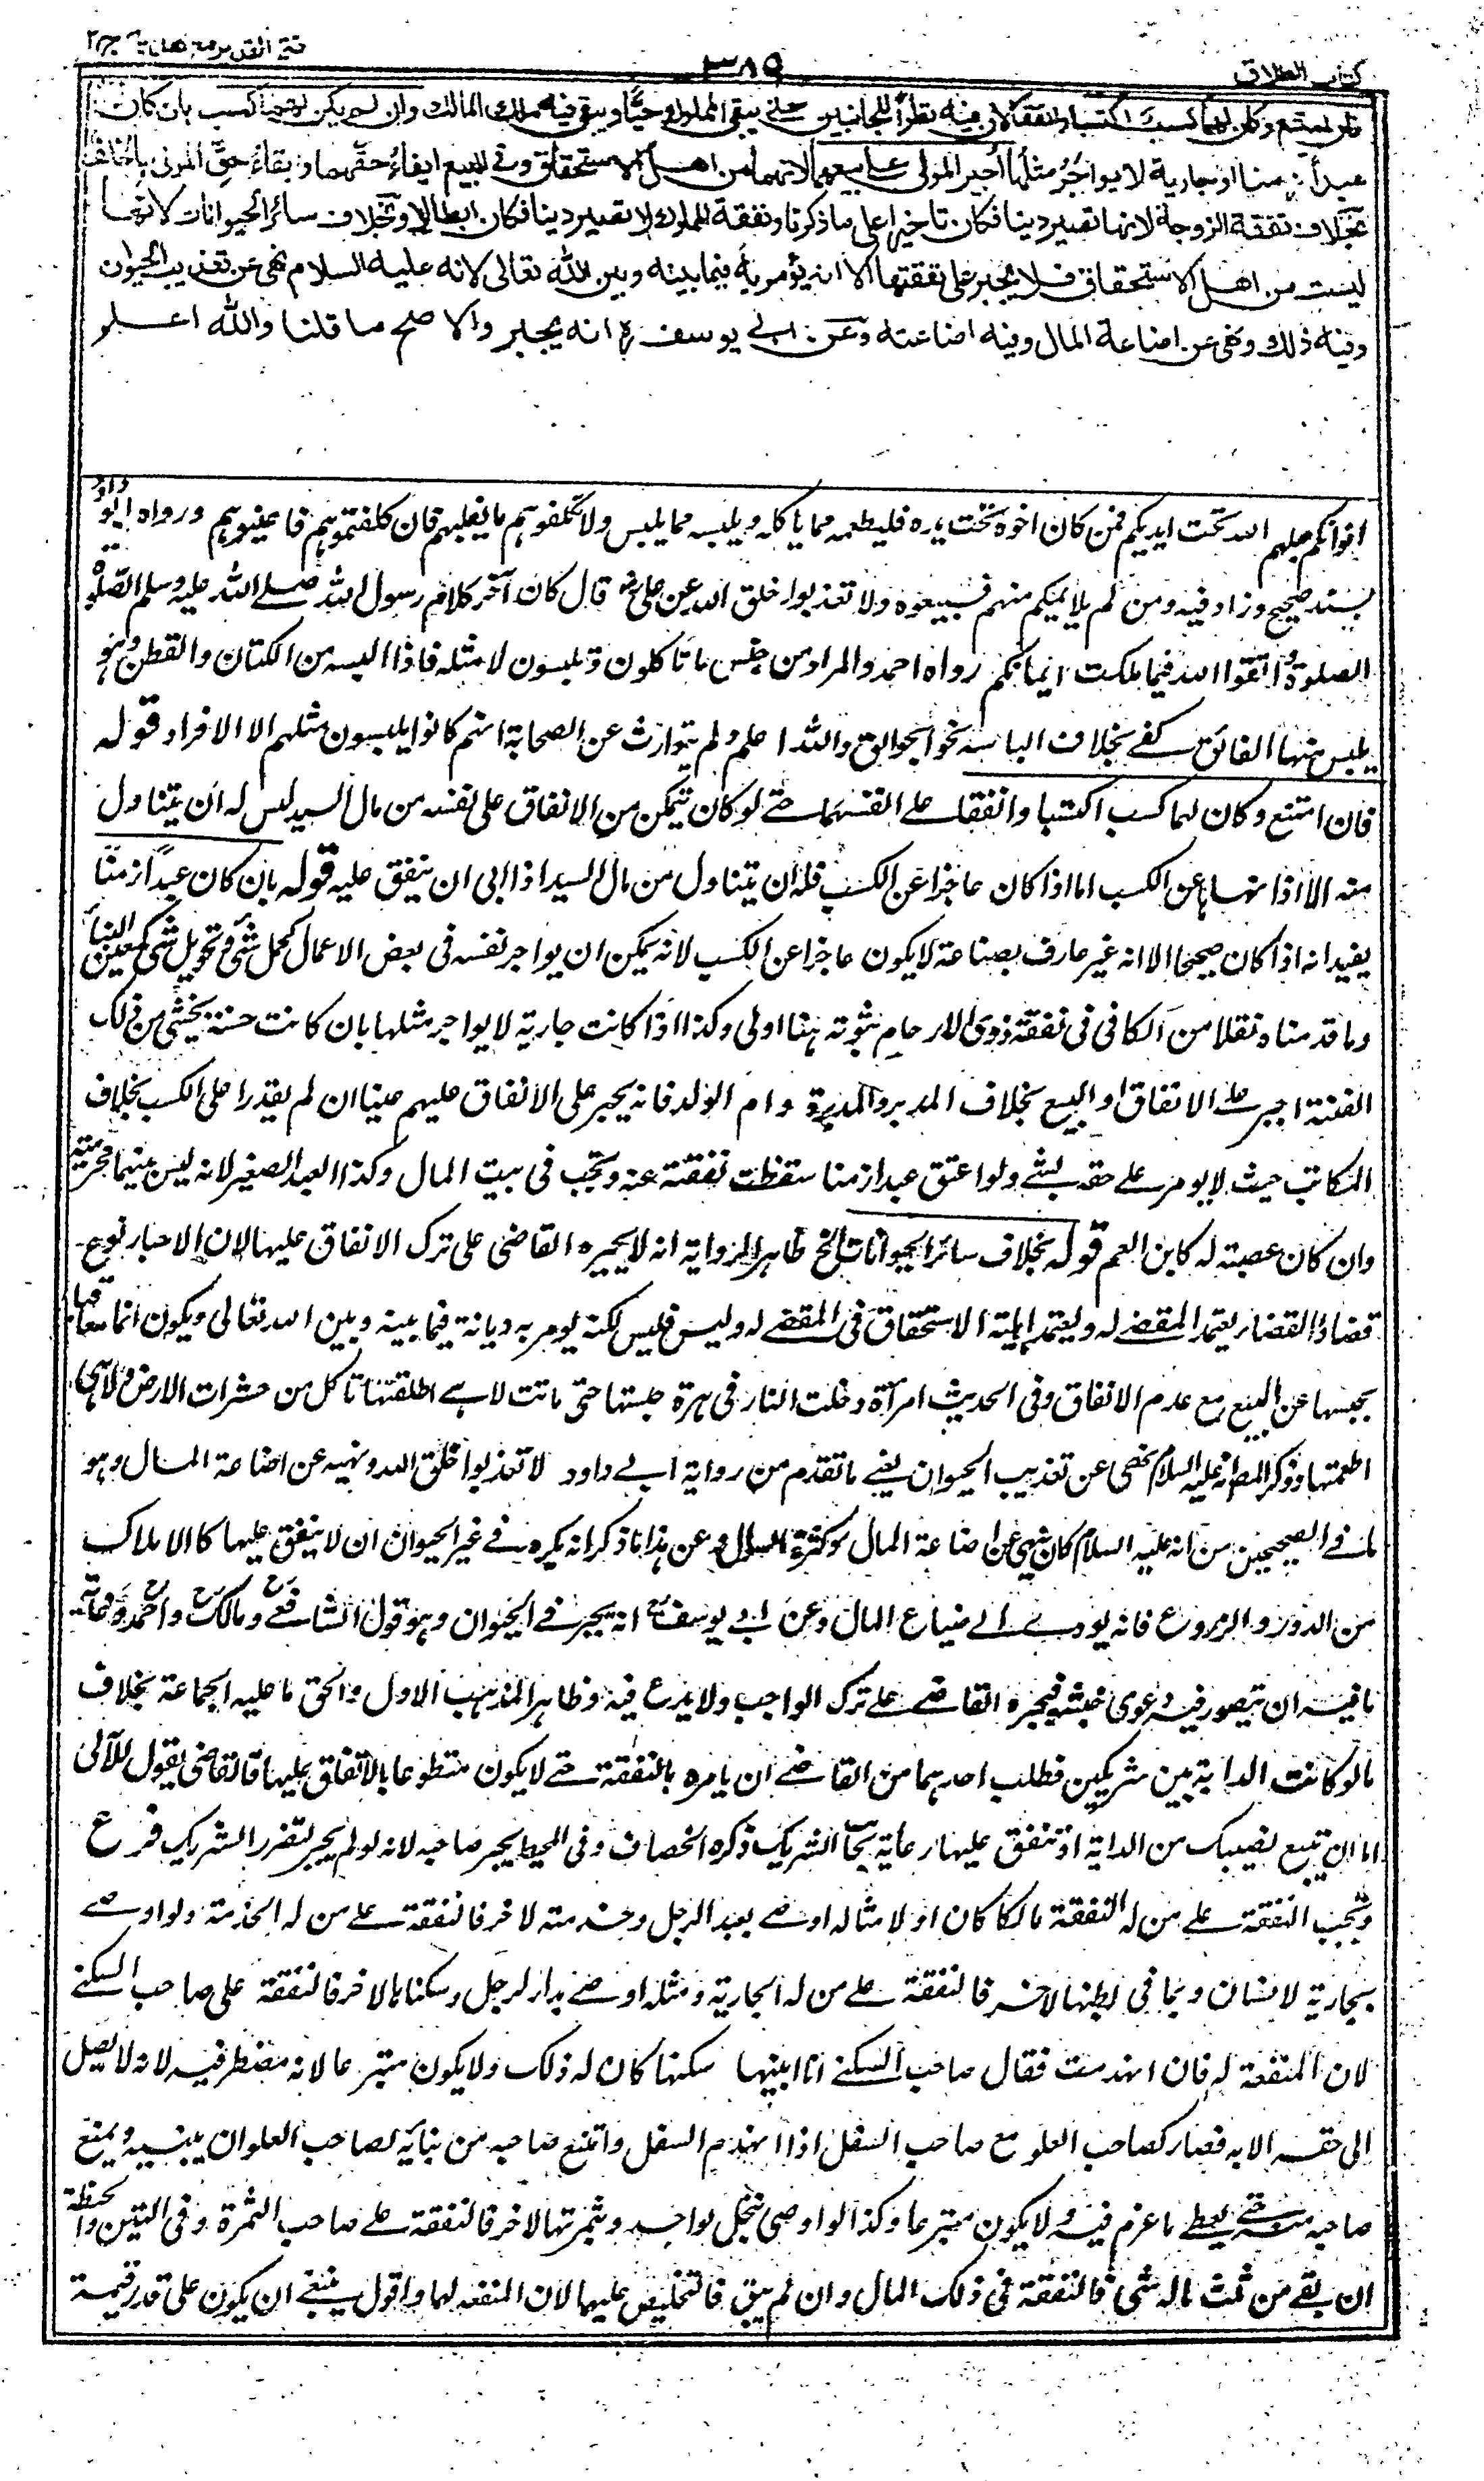 كتاب الطلاق
٣٨٩
فتح القدير مع هداية ج٢
فان امتنع وكان لهما كسب اكتسبا وانفقا لان فيه نظرا للجانبين حتى يبقى المملوك حيا ويبقى فيه ملك المالك وان لم يكن لهما كسب بان كان
عبدا زمنا او جارية لا يواجر مثلها اجبر المولى على بيعهما لانهما من اهل الاستحقاق وفي البيع ايفاء حقهما وبقاء حق المولى بالخلف
بخلاف نفقة الزوجة لانها تصير دينا فكان تاخيرا على ما ذكرنا ونفقة المملوك لا تصير دينا فكان ابطالا وبخلاف سائر الحيوانات لانها
ليست من اهل الاستحقاق فلا يجبر على نفقتها الا انه يؤمر به فيما بينه وبين الله تعالى لانه عليه السلام نهى عن تعذيب الحيوان
وفيه ذلك ونهى عن اضاعة المال وفيه اضاعته وعن ابي يوسف ره انه يجبر والاصح ما قلنا والله اعلم
اخوانكم جعلهم الله تحت ايديكم فمن كان اخوه تحت يده فليطعمه مما ياكله ويلبسه مما يلبس ولا تكلفوهم ما يغلبهم فان كلفتموهم فاعينوهم ورواه ابو داود
بسند صحيح وزاد فيه ومن لم يلايمكم منهم فبيعوه ولا تعذبوا خلق الله عن علي رض قال كان آخر كلام رسول الله صلى الله عليه وسلم الصلوة
الصلوة و اتقوا الله فيما ملكت ايمانكم رواه احمد والمراد من جنس ما تاكلون وتلبسون لا مثله فاذا البسه من الكتان والقطن وهو
يلبس منها الفائق كفى بخلاف الباسه نحو الجوالق والله اعلم ولم يتوارث عن الصحابة انهم كانوا يلبسون مثلهم الا الافراد قوله
فان امتنع وكان لهما كسب اكتسبا وانفقا على انفسهما حتى لو كان يتمكن من الانفاق على نفسه من مال السيد ليس له ان يتناول
منه الا اذا نهاه عن الكسب اما اذا كان عاجزا عن الكسب فله ان يتناول من مال السيد اذا ابى ان ينفق عليه قوله بان كان عبدا زمنا
يفيد انه اذا كان صحيحا الا انه غير عارف بصناعة لا يكون عاجزا عن الكسب لانه يمكن ان يواجر نفسه في بعض الاعمال كحمل شئ وتحويل شئ كمعين البناء
وما قدمناه نقلا من الكافي في نفقة ذوي الارحام ثبوته هنا اولى وكذا اذا كانت جارية لا يواجر مثلها بان كانت حسنة يخشى من ذلك
الفتنة اجبر على الانفاق او البيع بخلاف المدبر والمدبرة وام الولد فانه يجبر على الانفاق عليهم عينا ان لم يقدرا على الكسب بخلاف
المكاتب حيث لا يومر على حقه بشئ ولو اعتق عبدا زمنا سقطت نفقته عنه وتجب في بيت المال وكذا العبد الصغير لانه ليس بينهما محرمية
وان كان عصبته له كابن العم قوله بخلاف سائر الحيوانات الخ ظاهر الرواية انه لا يجبره القاضي على ترك الانفاق عليها لان الاجبار نوع
قضاء والقضاء يعتمد المقضى له ويعتمد اهلية الاستحقاق في المقضى له وليس فليس لكنه يومر به ديانة فيما بينه وبين الله تعالى ويكون آثما معاقبا
بحبسها عن البيع مع عدم الانفاق وفي الحديث امرأة دخلت النار في هرة حبستها حتى ماتت لا هي اطلقتها تاكل من حشرات الارض ولا هي
اطعمتها وذكر المص انه عليه السلام نهى عن تعذيب الحيوان يعني ما تقدم من رواية ابي داود لا تعذبوا خلق الله ونهيه عن اضاعة المال وهو
ما في الصحيحين من انه عليه السلام كان ينهى عن اضاعة المال وكثرة السوال وعن هذا ما ذكر انه يكره في غير الحيوان ان لا ينفق عليها كالاملاك
من الدور والزروع فانه يودي الى ضياع المال وعن ابي يوسف رح انه يجبر في الحيوان وهو قول الشافعي رح ومالك رح واحمد رح وغاية
ما فيه ان يتصور فيه دعوى حسبة فيجبره القاضي على ترك الواجب ولا بدع فيه وظاهر المذهب الاول والحق ما عليه الجماعة بخلاف
ما لو كانت الدابة بين شريكين فطلب احدهما من القاضي ان يامره بالنفقة حتى لا يكون متطوعا بالانفاق عليها فالقاضي يقول للآبي
اما ان تبيع نصيبك من الدابة او تنفق عليها رعاية لجانب الشريك ذكره الخصاف وفي المحيط يجبر صاحبه لانه لو لم يجبر لتضرر الشريك فرع
وتجب النفقة على من له النفقة مالكا كان او لا مثاله اوصى بعبد الرجل وخدمته لاخر فالنفقة على من له الخدمة ولو اوصى
بجارية لانسان وبما في بطنها لاخر فالنفقة على من له الجارية ومثله اوصى بدار لرجل وسكناها لاخر فالنفقة على صاحب السكنى
لان المنفعة له فان انهدمت فقال صاحب السكنى انا ابنيها سكنها كان له ذلك ولا يكون متبرعا لانه مضطر فيه لانه لا يصل
الى حقه الا به فصار كصاحب العلو مع صاحب السفل اذا انهدم السفل وامتنع صاحبه من بنائه لصاحب العلو ان يبنيه ويمنع
صاحبه منه حتى يعطى ما غرم فيه ولا يكون متبرعا وكذا لو اوصى بنخل لواحد وبثمرتها لاخر فالنفقة على صاحب الثمرة وفي التبن والحنطة
ان بقى من ثلث ماله شئ فالنفقة في ذلك المال وان لم يبق فالتخليص عليهما لان المنفعة لهما واقول ينبغي ان يكون على قدر قيمة